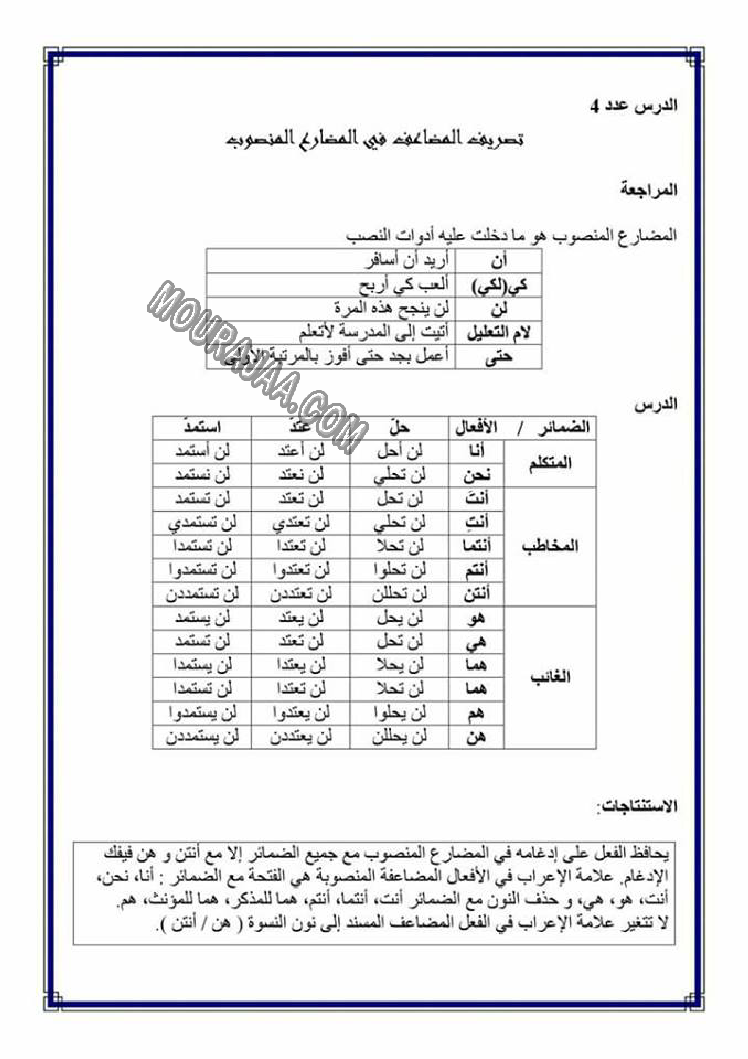 الدرس عدد 4
تصريف المضاعف في المضارع المنصوب
المراجعة
المضارع المنصوب هو ما دخلت عليه أدوات النصب
أن أريد أن أسافر
كي(لكي) ألعب كي أربح
لن لن ينجح هذه المرة
لام التعليل أتيت إلى المدرسة لأتعلم
حتى أعمل بجد حتى أفوز بالمرتبة الأولى
MOURAJAA.COM
الدرس
الضمائر / الأفعال حلّ عتدّ استمدّ
المتكلم أنا لن أحل لن أعتد لن أستمد
نحن لن تحلي لن نعتد لن نستمد
المخاطب أنتَ لن تحل لن تعتد لن تستمد
أنتِ لن تحلي لن تعتدي لن تستمدي
أنتما لن تحلا لن تعتدا لن تستمدا
أنتم لن تحلوا لن تعتدوا لن تستمدوا
أنتن لن تحللن لن تعتددن لن تستمددن
الغائب هو لن يحل لن يعتد لن يستمد
هي لن تحل لن تعتد لن تستمد
هما لن يحلا لن يعتدا لن يستمدا
هما لن تحلا لن تعتدا لن تستمدا
هم لن يحلوا لن يعتدوا لن يستمدوا
هن لن يحللن لن يعتددن لن يستمددن
الاستنتاجات:
يحافظ الفعل على إدغامه في المضارع المنصوب مع جميع الضمائر إلا مع أنتن و هن فيفك
الإدغام. علامة الإعراب في الأفعال المضاعفة المنصوبة هي الفتحة مع الضمائر : أنا، نحن،
أنت، هو، هي، و حذف النون مع الضمائر أنت، أنتما، أنتم، هما للمذكر، هما للمؤنث، هم.
لا تتغير علامة الإعراب في الفعل المضاعف المسند إلى نون النسوة ( هن / أنتن ).